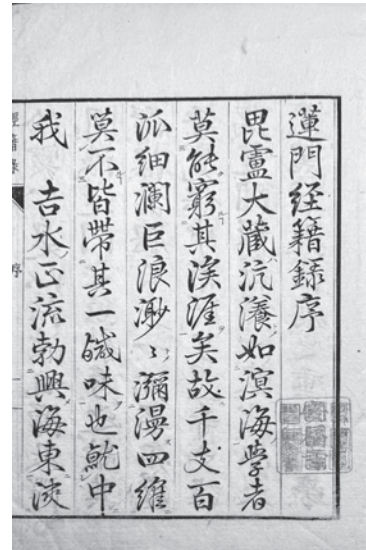 蓮門経籍録序
毘盧大藏沆瀁如溟海學者
莫能窮其涘涯矣故千支百
泒細瀾巨浪渺〻瀰漫四維
莫不皆帶其一鹹味也就中
我 吉水正流勃興海東浹
序